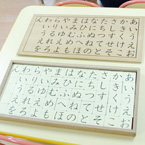 あいうえお
かきくけこ
さしすせそ
たちつてと
なにぬねの
はひふへほ
まみむめも
やいゆえよ
らりるれろ
わいうえを
ん
あいうえお
かきくけこ
さしすせそ
たちつてと
なにぬねの
はひふへほ
まみむめも
やいゆえよ
らりるれろ
わいうえを
ん